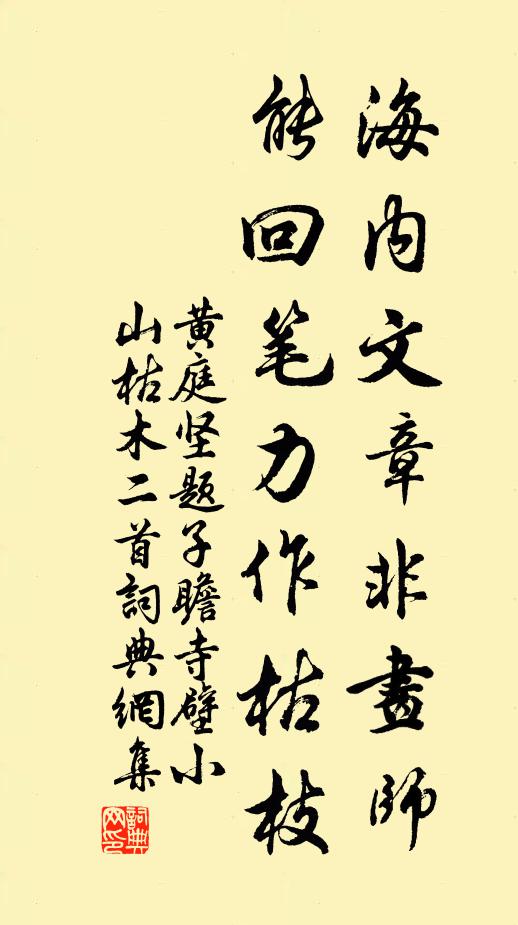 海内文章非畫師
能回笔力作枯枝
黄庭坚题子瞻寺壁小
山枯木二首詞典網集
詞典网印